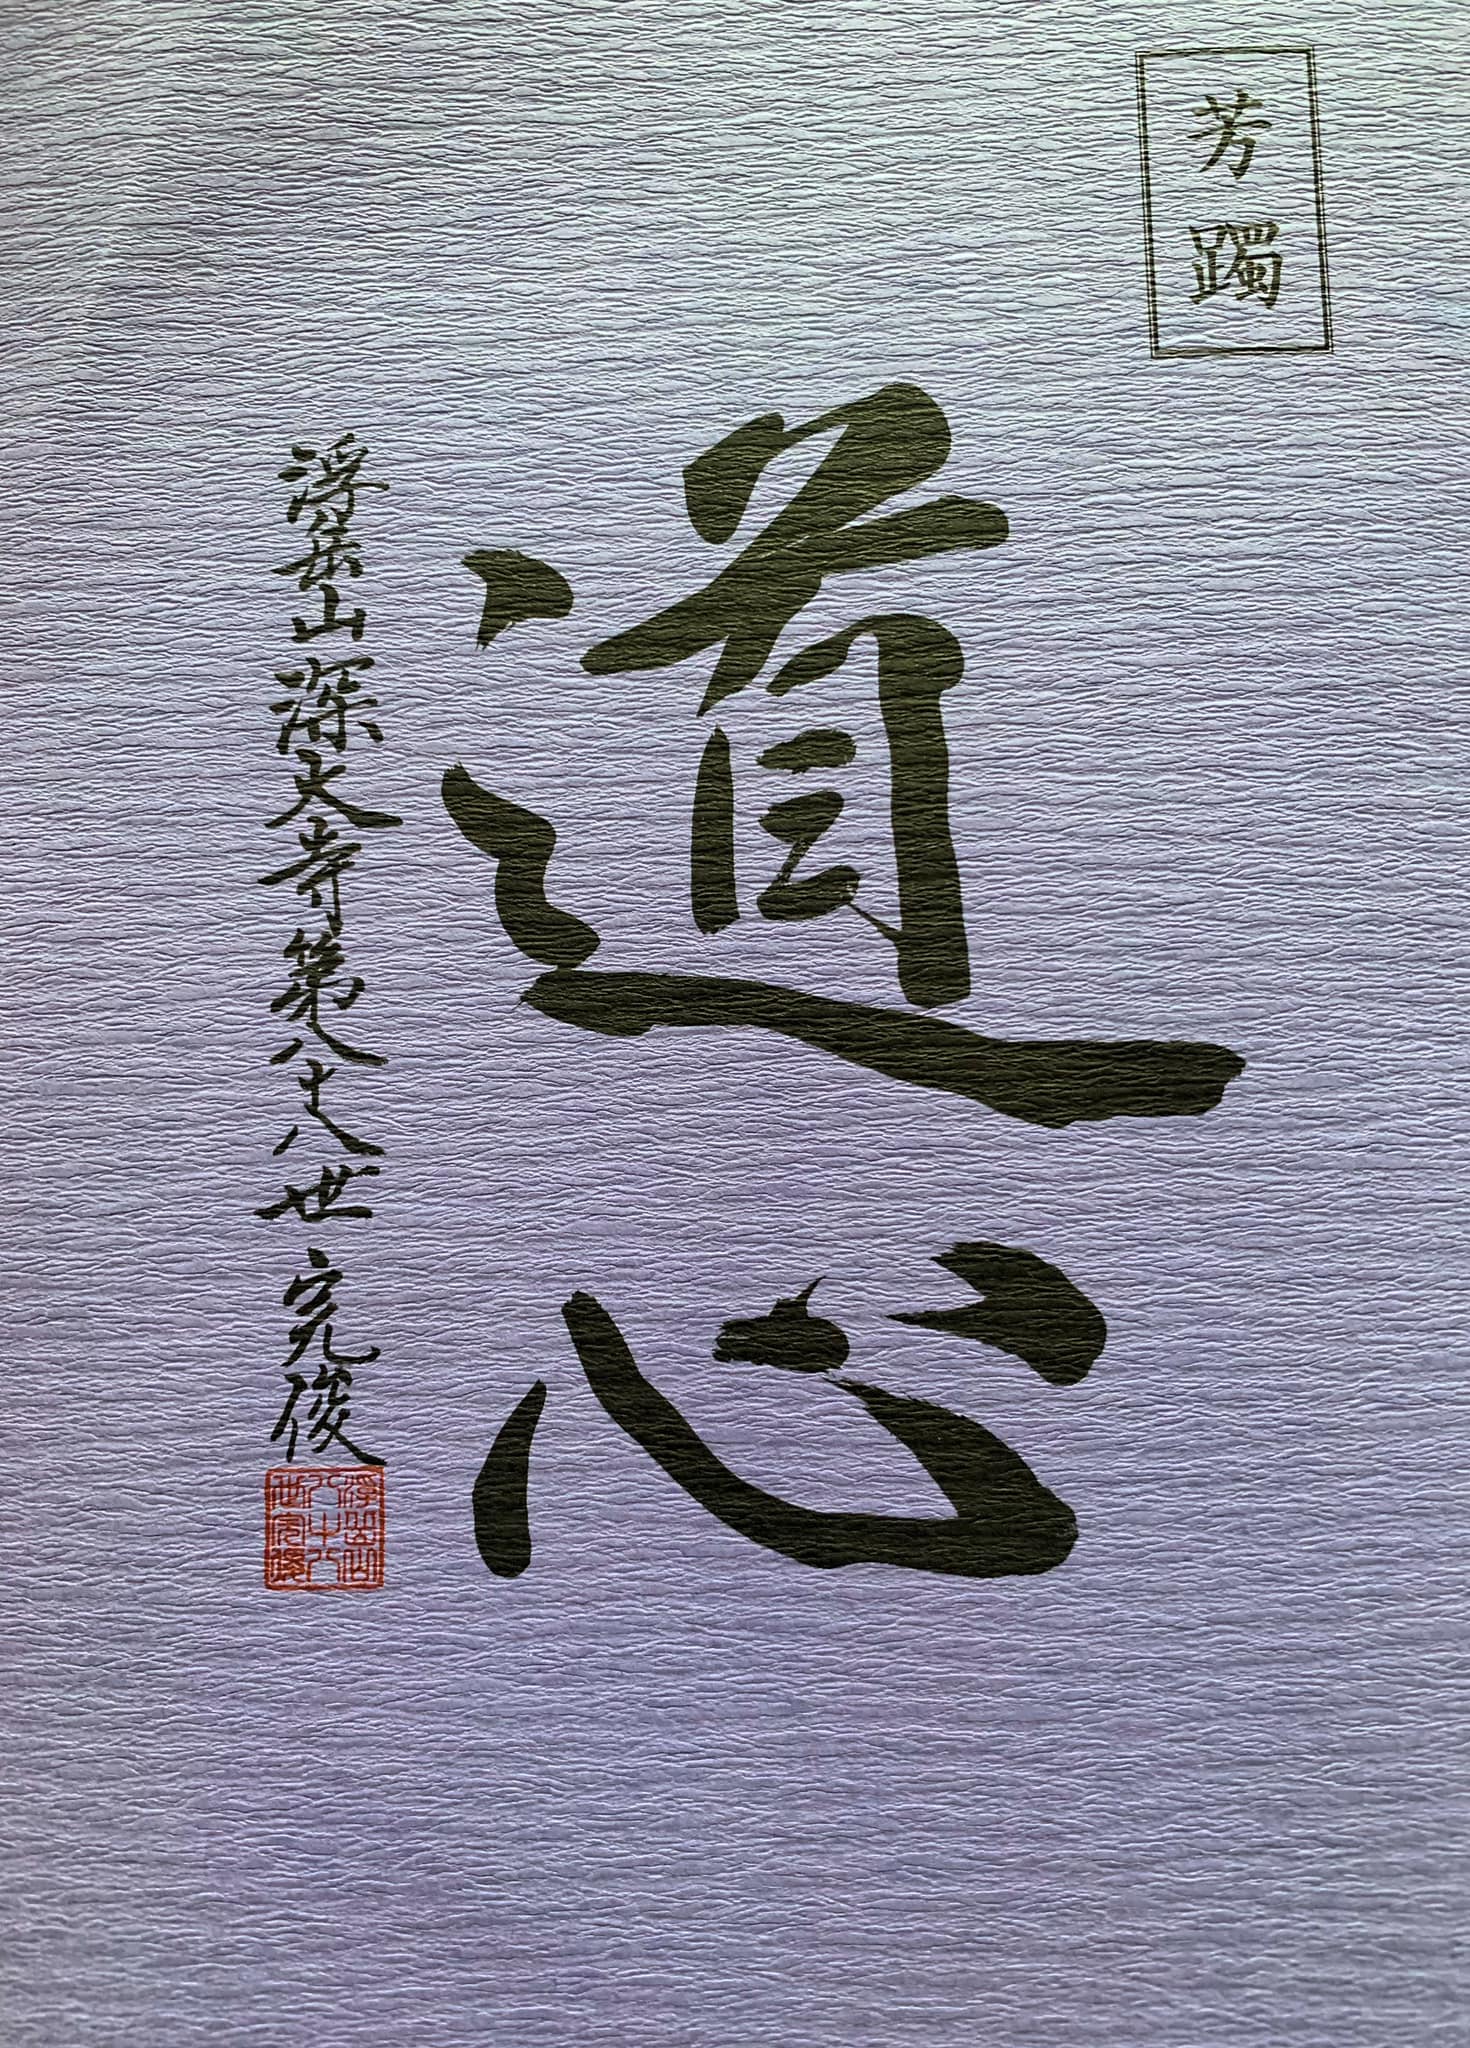 芳躅
道心
浮岳山深大寺第八十八世 完俊